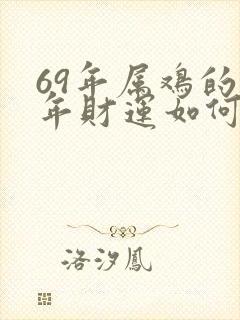 69年属鸡的
年财运如何
洛汐凤